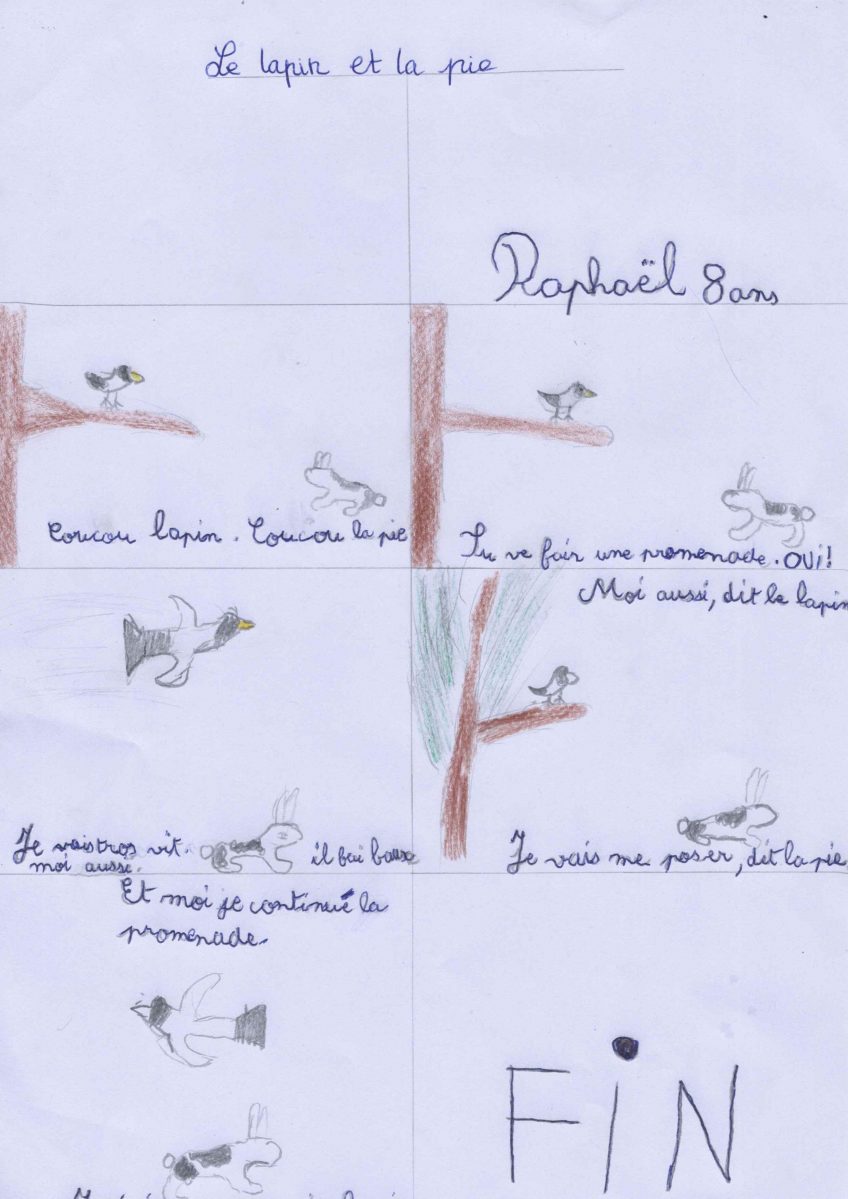 Le lapin et la pie
Raphaël 8 ans
Coucou lapin. Coucou la pie
Tu ve fair une promenade. OUi!
Je vais tros vit.
moi aussi.
il fai bause
Moi aussi, dit le lapin
Je vais me poser, dit la pie
Et moi je continué la
promenade.
FiN